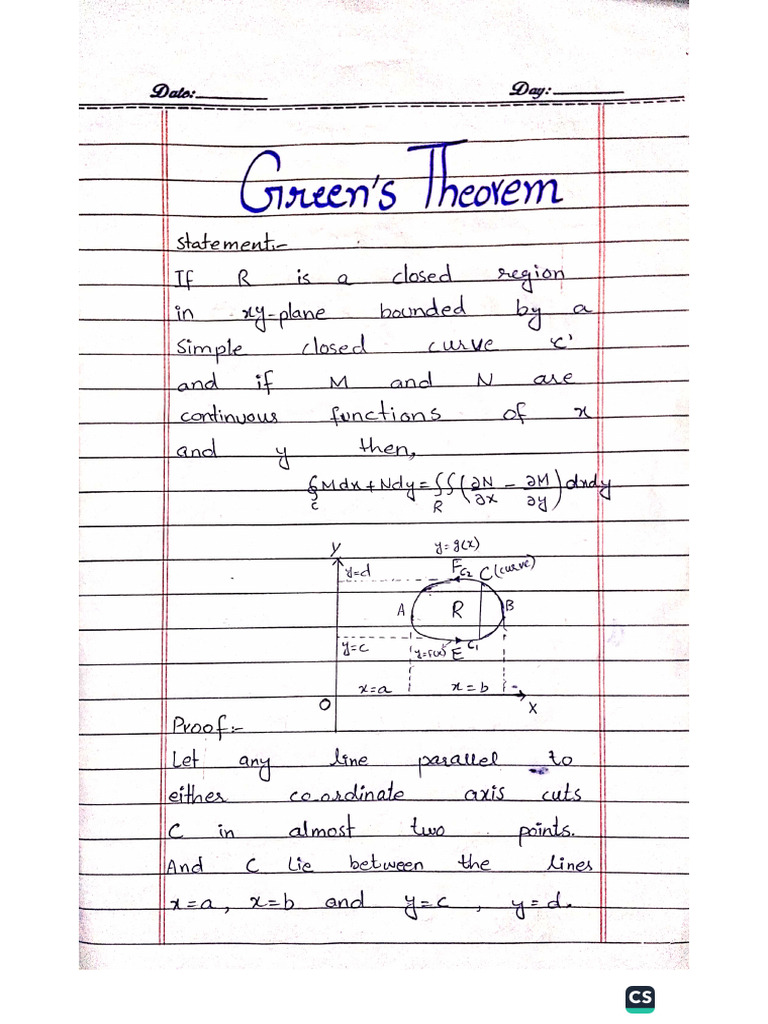 Date:________ Day:________
Green's Theorem
Statement:-
If R is a closed region
in xy-plane bounded by a
Simple closed curve 'c'
and if M and N are
continuous functions of x
and y then,
∮c Mdx+Ndy=∫∫R(∂N/∂x - ∂M/∂y)dxdy
y=g(x)
Y
y=d F C2 C(curve)
A R B
y=c y=f(x) E C1
x=a x=b
O X
Proof:-
Let any line parallel to
either co-ordinate axis cuts
C in almost two points.
And C Lie between the lines
x=a, x=b and y=c, y=d.
CS